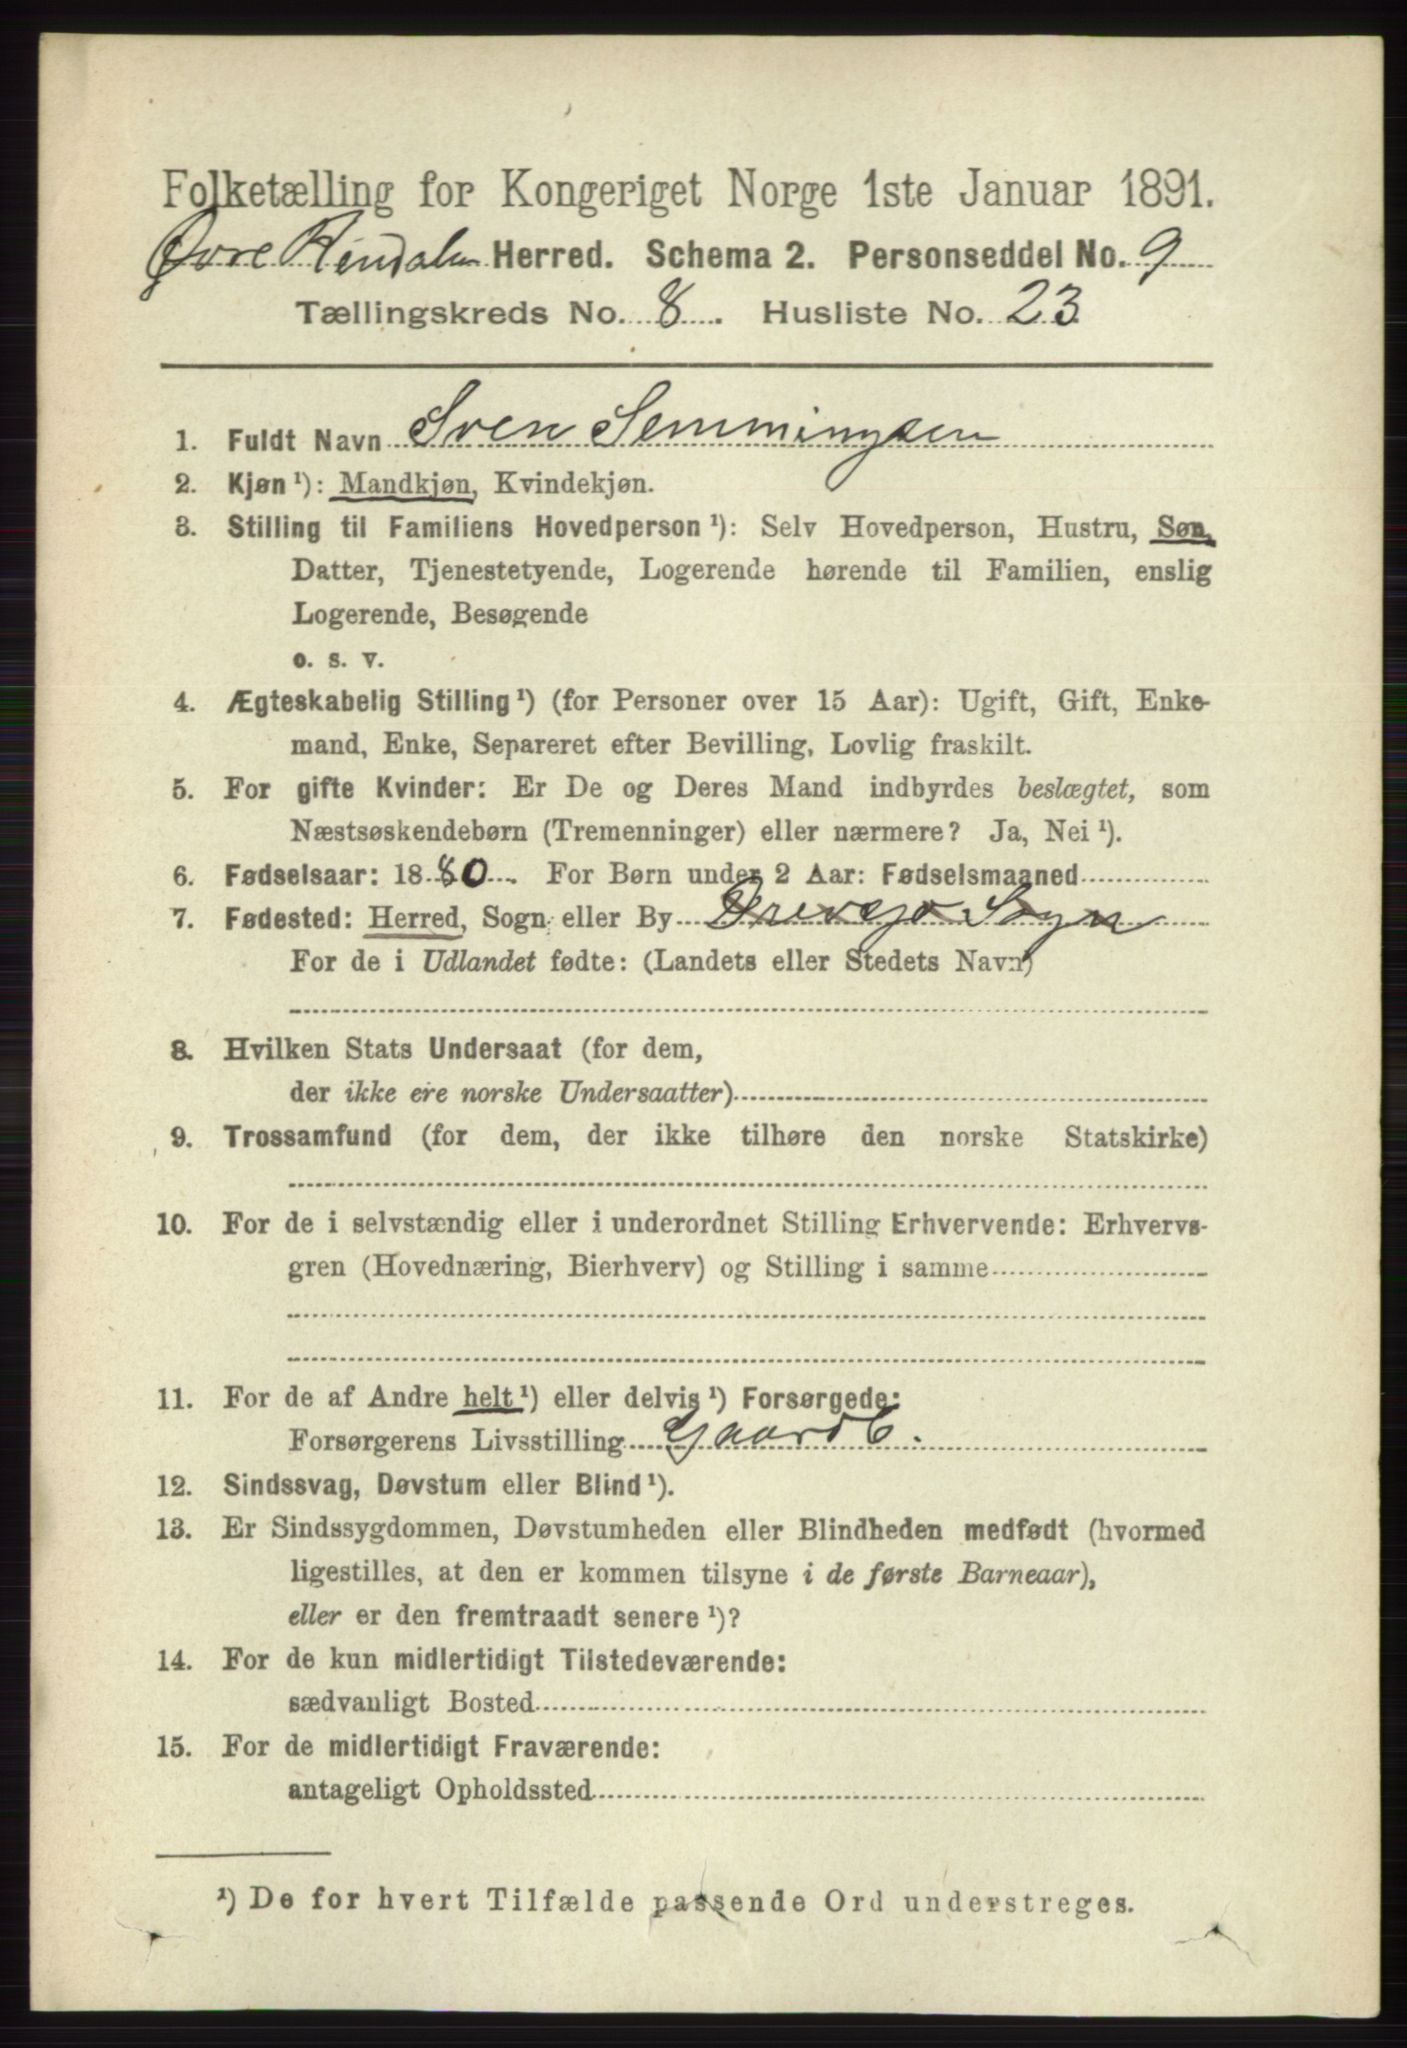 Folketælling for Kongeriget Norge 1ste Januar 1891.
Øvre Rendalen Herred. Schema 2. Personseddel No. 9
Tællingskreds No. 8. Husliste No. 23
1. Fuldt Navn Sven Semmingsen
2. Kjøn ¹): Mandkjøn, Kvindekjøn.
3. Stilling til Familiens Hovedperson ¹): Selv Hovedperson, Hustru, Søn,
Datter, Tjenestetyende, Logerende hørende til Familien, enslig
Logerende, Besøgende
o. s. v.
4. Ægteskabelig Stilling ¹) (for Personer over 15 Aar): Ugift, Gift, Enke-
mand, Enke, Separeret efter Bevilling, Lovlig fraskilt.
5. For gifte Kvinder: Er De og Deres Mand indbyrdes beslægtet, som
Næstsøskendebørn (Tremenninger) eller nærmere? Ja, Nei ¹).
6. Fødselsaar: 1880. For Børn under 2 Aar: Fødselsmaaned
7. Fødested: Herred, Sogn eller By Drevsjø Sogn
For de i Udlandet fødte: (Landets eller Stedets Navn)
8. Hvilken Stats Undersaat (for dem,
der ikke ere norske Undersaatter)
9. Trossamfund (for dem, der ikke tilhøre den norske Statskirke)
10. For de i selvstændig eller i underordnet Stilling Erhvervende: Erhvervs-
gren (Hovednæring, Bierhverv) og Stilling i samme
11. For de af Andre helt ¹) eller delvis ¹) Forsørgede:
Forsørgerens Livsstilling Gaardb.
12. Sindssvag, Døvstum eller Blind ¹).
13. Er Sindssygdommen, Døvstumheden eller Blindheden medfødt (hvormed
ligestilles, at den er kommen tilsyne i de første Barneaar),
eller er den fremtraadt senere ¹)?
14. For de kun midlertidigt Tilstedeværende:
sædvanligt Bosted
15. For de midlertidigt Fraværende:
antageligt Opholdssted
¹) De for hvert Tilfælde passende Ord understreges.